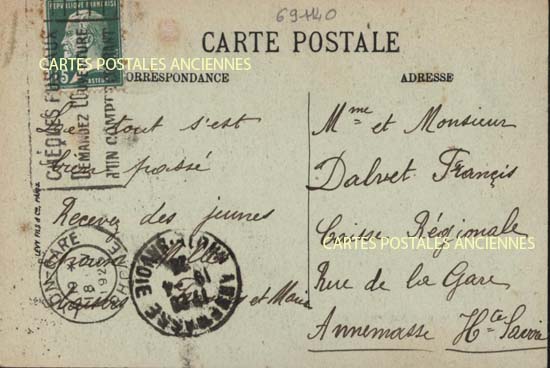 69140
CARTE POSTALE
CORRESPONDANCE
ADRESSE
CHÈQUES POSTAUX
DEMANDEZ L'OUVERTURE
D'UN COMPTE COURANT
CARTES POSTALES ANCIENNES
tout s'est
bien passé
Recevez des jeunes
et Marie
LEVY FILS & Cie, PARIS
GARE
192
HTE SAVOIE
Mme et Monsieur
Dalvet Francis
Caisse Régionale
CARTES POSTALES ANCIENNES
Rue de la Gare
Annemasse Hte Savoie